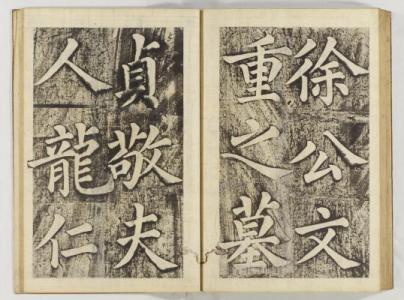 徐公文
重之墓
貞敬夫
人龍仁